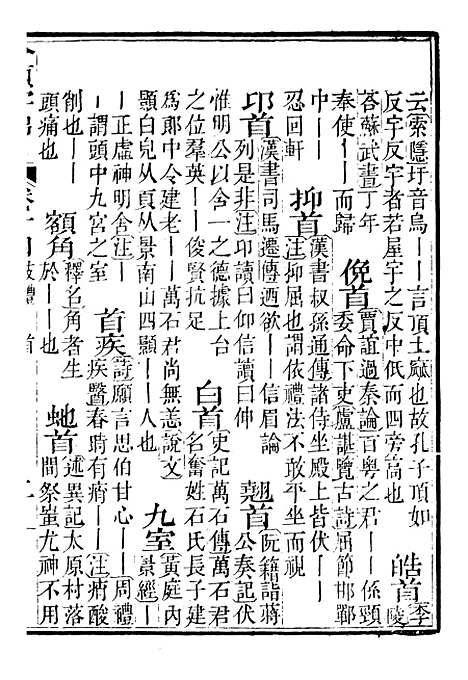 云索隱圩音烏｜｜言頂土窳也故孔子頂如
反宇反宇者若屋宇之反中低而四旁高也
皓首
李陵
答蘇武書丁年
奉使｜｜而歸
俛首
賈誼過秦論百粵之君｜｜係頸
委命下吏盧諶覽古詩屈節邯鄲
中｜｜
忍回軒
抑首
漢書叔孫通傳諸侍坐殿上皆伏｜｜
注抑屈也謂依禮法不敢平坐而視
卬首
漢書司馬遷傳迺欲｜｜信眉論
列是非注卬讀曰仰信讀曰伸
翹首
阮籍詣蔣
公奏記伏
惟明公以含一之德據上台
之位羣英｜｜俊賢抗足
白首
史記萬石傳萬石君
名奮姓石氏長子建
為郎中令建老｜｜萬石君尚無恙說文
顥白皃从頁从景南山四顥｜｜人也
九室
黃庭內
景經｜｜
｜正虛神明舍注｜
｜謂頭中九宮之室
首疾
詩願言思伯甘心｜｜周禮
疾醫春時有痟｜｜注痟酸
削也｜｜
頭痛也
額角
釋名角者生
於｜｜也
虵首
述異記太原村落
間祭蚩尤神不用
卷十四 肢體 首